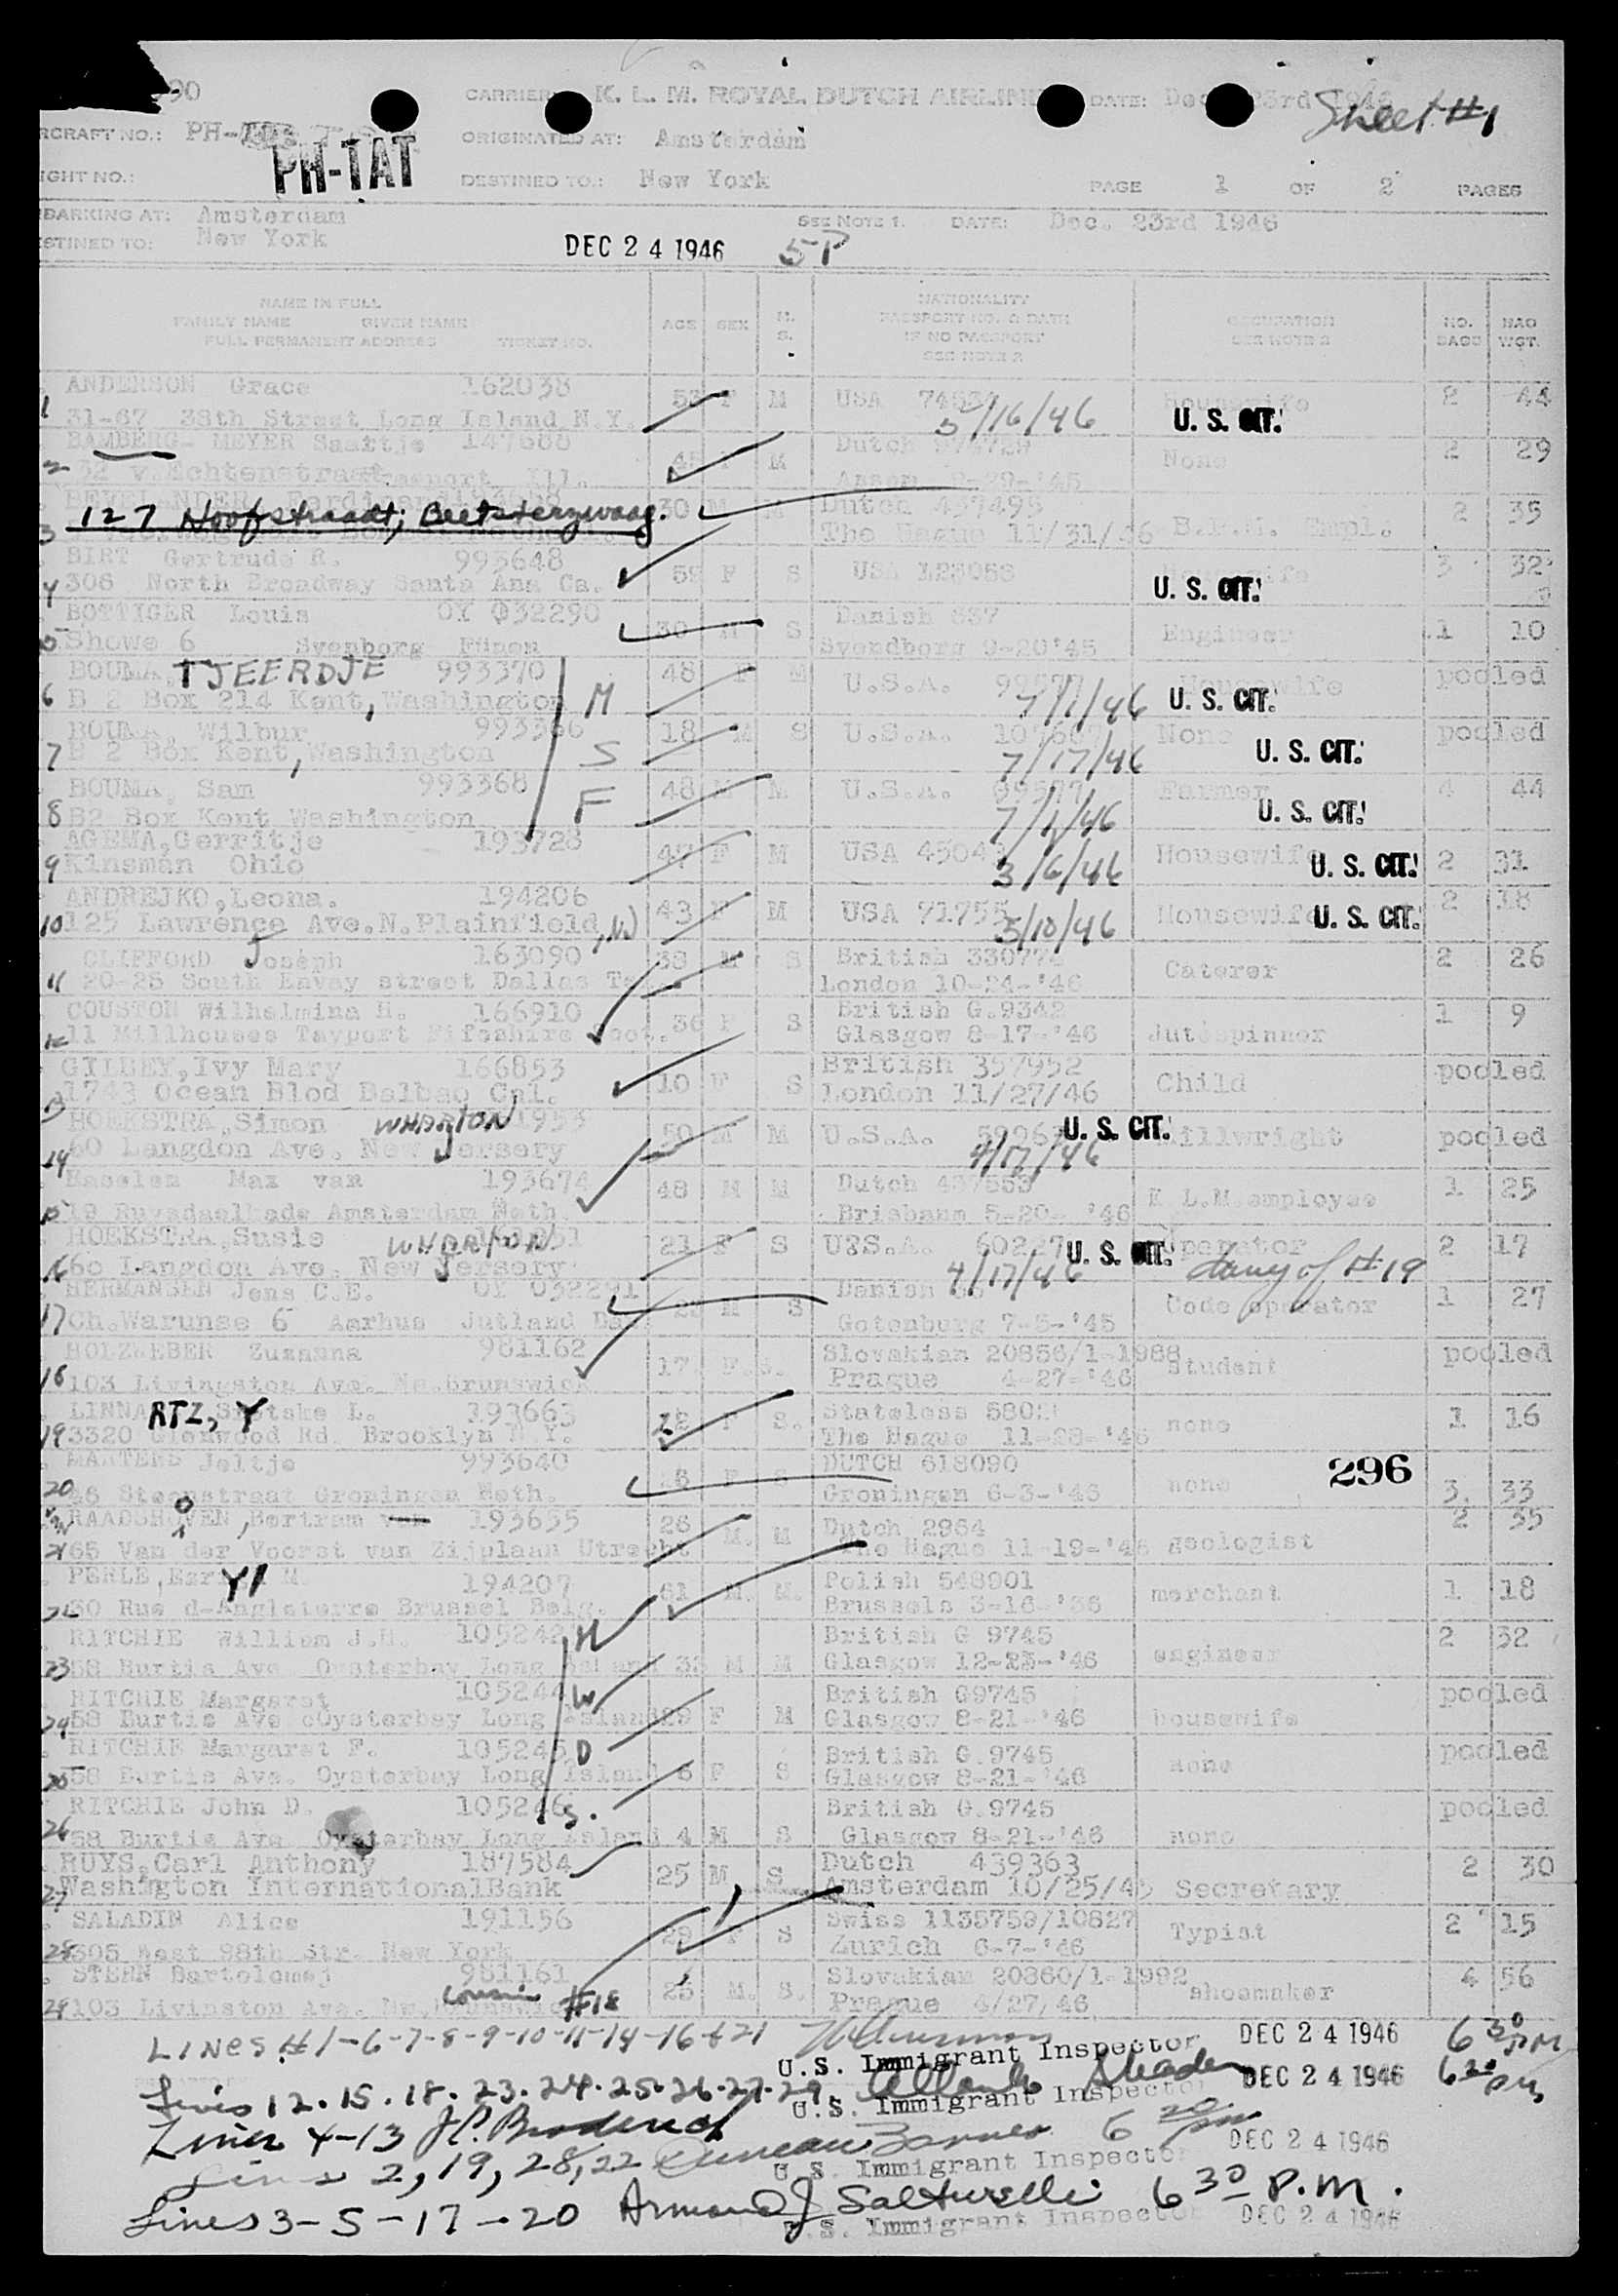 90 CARRIER: K. L. M. ROYAL DUTCH AIRLINES DATE: Dec. 23rd 1946
Sheet #1
RCRAFT NO.: PH- PH-TAT ORIGINATED AT: Amsterdam
IGHT NO.: DESTINED TO.: New York PAGE 1 OF 2 PAGES
BARKING AT: Amsterdam SEE NOTE 1. DATE: Dec. 23rd 1946
STINED TO: New York DEC 24 1946 5P
NAME IN FULL
FAMILY NAME GIVEN NAME
FULL PERMANENT ADDRESS TICKET NO.
AGE SEX M. S.
NATIONALITY
PASSPORT NO. & DATE
IF NO PASSPORT
SEE NOTE 2
OCCUPATION
SEE NOTE 2
NO. BAGS BAG WGT.
ANDERSON Grace 162038 53 F M USA Housewife 2 44
1 31-67 38th Street Long Island N.Y. 5/16/46 U. S. CIT.
BAMBERG- MEYER Saartje 147688 45 F M Dutch None 2 29
2 32 v.Echtenstraat Ill. Assen
3 127 Hoofstraadt; Beetsterzwaag. 30 M Dutch 457495 2 35
The Hague 11/31/46 Empl.
BIRT Gertrude R. 993648 59 F S USA Housewife 3 32
4 306 North Broadway Santa Ana Ca. U. S. CIT.
BOTTIGER Louis OY 032290 30 M S Danish 837 Engineer 1 10
5 Showe 6 Svenborg Fünen Svendborg 9-20'45
BOUMA TJEERDJE 993370 48 F M U.S.A. Housewife pooled
6 B 2 Box 214 Kent, Washington M 7/1/46 U. S. CIT.
BOUMA, Wilbur 993366 18 M S U.S.A. None pooled
7 B 2 Box Kent, Washington S 7/17/46 U. S. CIT.
BOUMA, Sam 993368 48 M M U.S.A. Farmer 4 44
8 B2 Box Kent Washington F 7/1/46 U. S. CIT.
AGEMA, Gerritje 193728 47 F M USA Housewife 2 31
9 Kinsman Ohio 3/6/46 U. S. CIT.
ANDREJKO, Leona. 194206 43 F M USA 71755 Housewife 2 18
10 125 Lawrence Ave.N.Plainfield, NJ 5/10/46 U. S. CIT.
CLIFFORD Joseph 163090 38 M S British Caterer 2 26
11 20-25 South Envay street Dallas London 10-24-'46
COUSTON Wilhelmina H. 166910 36 F S British G.9342 1 9
12 11 Millhouses Tayport Fifeshire Scot. Glasgow 8-17-'46 Jutespinner
GILBEY, Ivy Mary 166853 10 F S British 357952 Child pooled
13 1743 Ocean Blod Balbao Cal. London 11/27/46
HOEKSTRA, Simon WHARTON 50 M M U.S.A. U. S. CIT. Millwright pooled
14 60 Langdon Ave. New Jersery 4/17/46
Hasselen Max van 193674 48 M M Dutch K L.M.employee 1 25
15 19 Ruysdaelkade Amsterdam Neth. Brisbane 5-20- '46
HOEKSTRA, Susie WHARTON 21 F S U.S.A. 60227 U. S. CIT. Operator 2 17
16 60 Langdon Ave. New Jersery 4/17/46
HERMANSEN Jens C.E. OY 032291 23 M S Danish Code operator 1 27
17 Ch.Warunse 6 Aarhus Jutland Gotenburg 7-5-'45
HOLZWEBER Zuzanna 981162 17 F S. Slovakian 20856/1-1988 Student pooled
18 103 Livingston Ave. Ne.brunswick Prague 4-27-'46
LINNARTZ, 193663 F S. Stateless none 1 16
19 3320 Glenwood Rd. Brooklyn N.Y. The Hague 11-28-'46
MARTENS Jeltje 993640 F S DUTCH 618090 none 296 3 33
20 Steenstraat Groningen Neth. Groningen 6-3-'46
RAADSHOOVEN, Bertram van 193655 26 M. M Dutch 2964 2 35
21 65 Van der Voorst van Zijplaan Utrecht The Hague 11-19-'46 geologist
PERLE, M. 194207 61 M. M. Polish 548901 merchant 1 18
22 30 Rue d-Angleterre Brussel Belg. Brussels
RITCHIE William J.H. 105242 H British G 9745 2 32
23 58 Burtis Ave Oysterbay Long Island M M Glasgow 12-23-'46 engineer
RITCHIE Margaret 105244 W British G9745 pooled
24 58 Burtis Ave cOysterbay Long Island 29 F M Glasgow 8-21-'46 housewife
RITCHIE Margaret F. 105245 D British G.9745 pooled
25 58 Burtis Ave. Oysterbay Long Island 6 F S Glasgow 8-21-'46 none
RITCHIE John D. 105246 S. British G.9745 pooled
26 58 Burtis Ave Oysterbay Long Island 4 M S Glasgow 8-21-'46 none
RUYS, Carl Anthony 187584 25 M. S. Dutch 439363 2 30
27 Washington InternationalBank Amsterdam 10/25/45 Secretary
SALADIN Alice 191156 29 F S Swiss 1135759/10827 Typist 2 15
28 305 West 98th Str. New York Zurich 6-7-'46
STERN Bartolomej 981161 25 M. S. Slovakian 20860/1-1992 4 56
29 103 Livinston Ave. Nw.Brunswick cousin #18 Prague 4/27/46 shoemaker
LINES #1-6-7-8-9-10-11-14-16 & 21 DEC 24 1946 6 30 PM
U.S. Immigrant Inspector
Lines 12.15.18.23.24.25.26.27.29 DEC 24 1946 6 20 PM
U.S. Immigrant Inspector
Lines 4-13 6 20 pm
Lines 2, 19, 28, 22 Duncan DEC 24 1946
U.S. Immigrant Inspector
Lines 3-5-17-20 Armand J Salturelli 6 30 P.M.
U.S. Immigrant Inspector DEC 24 1946